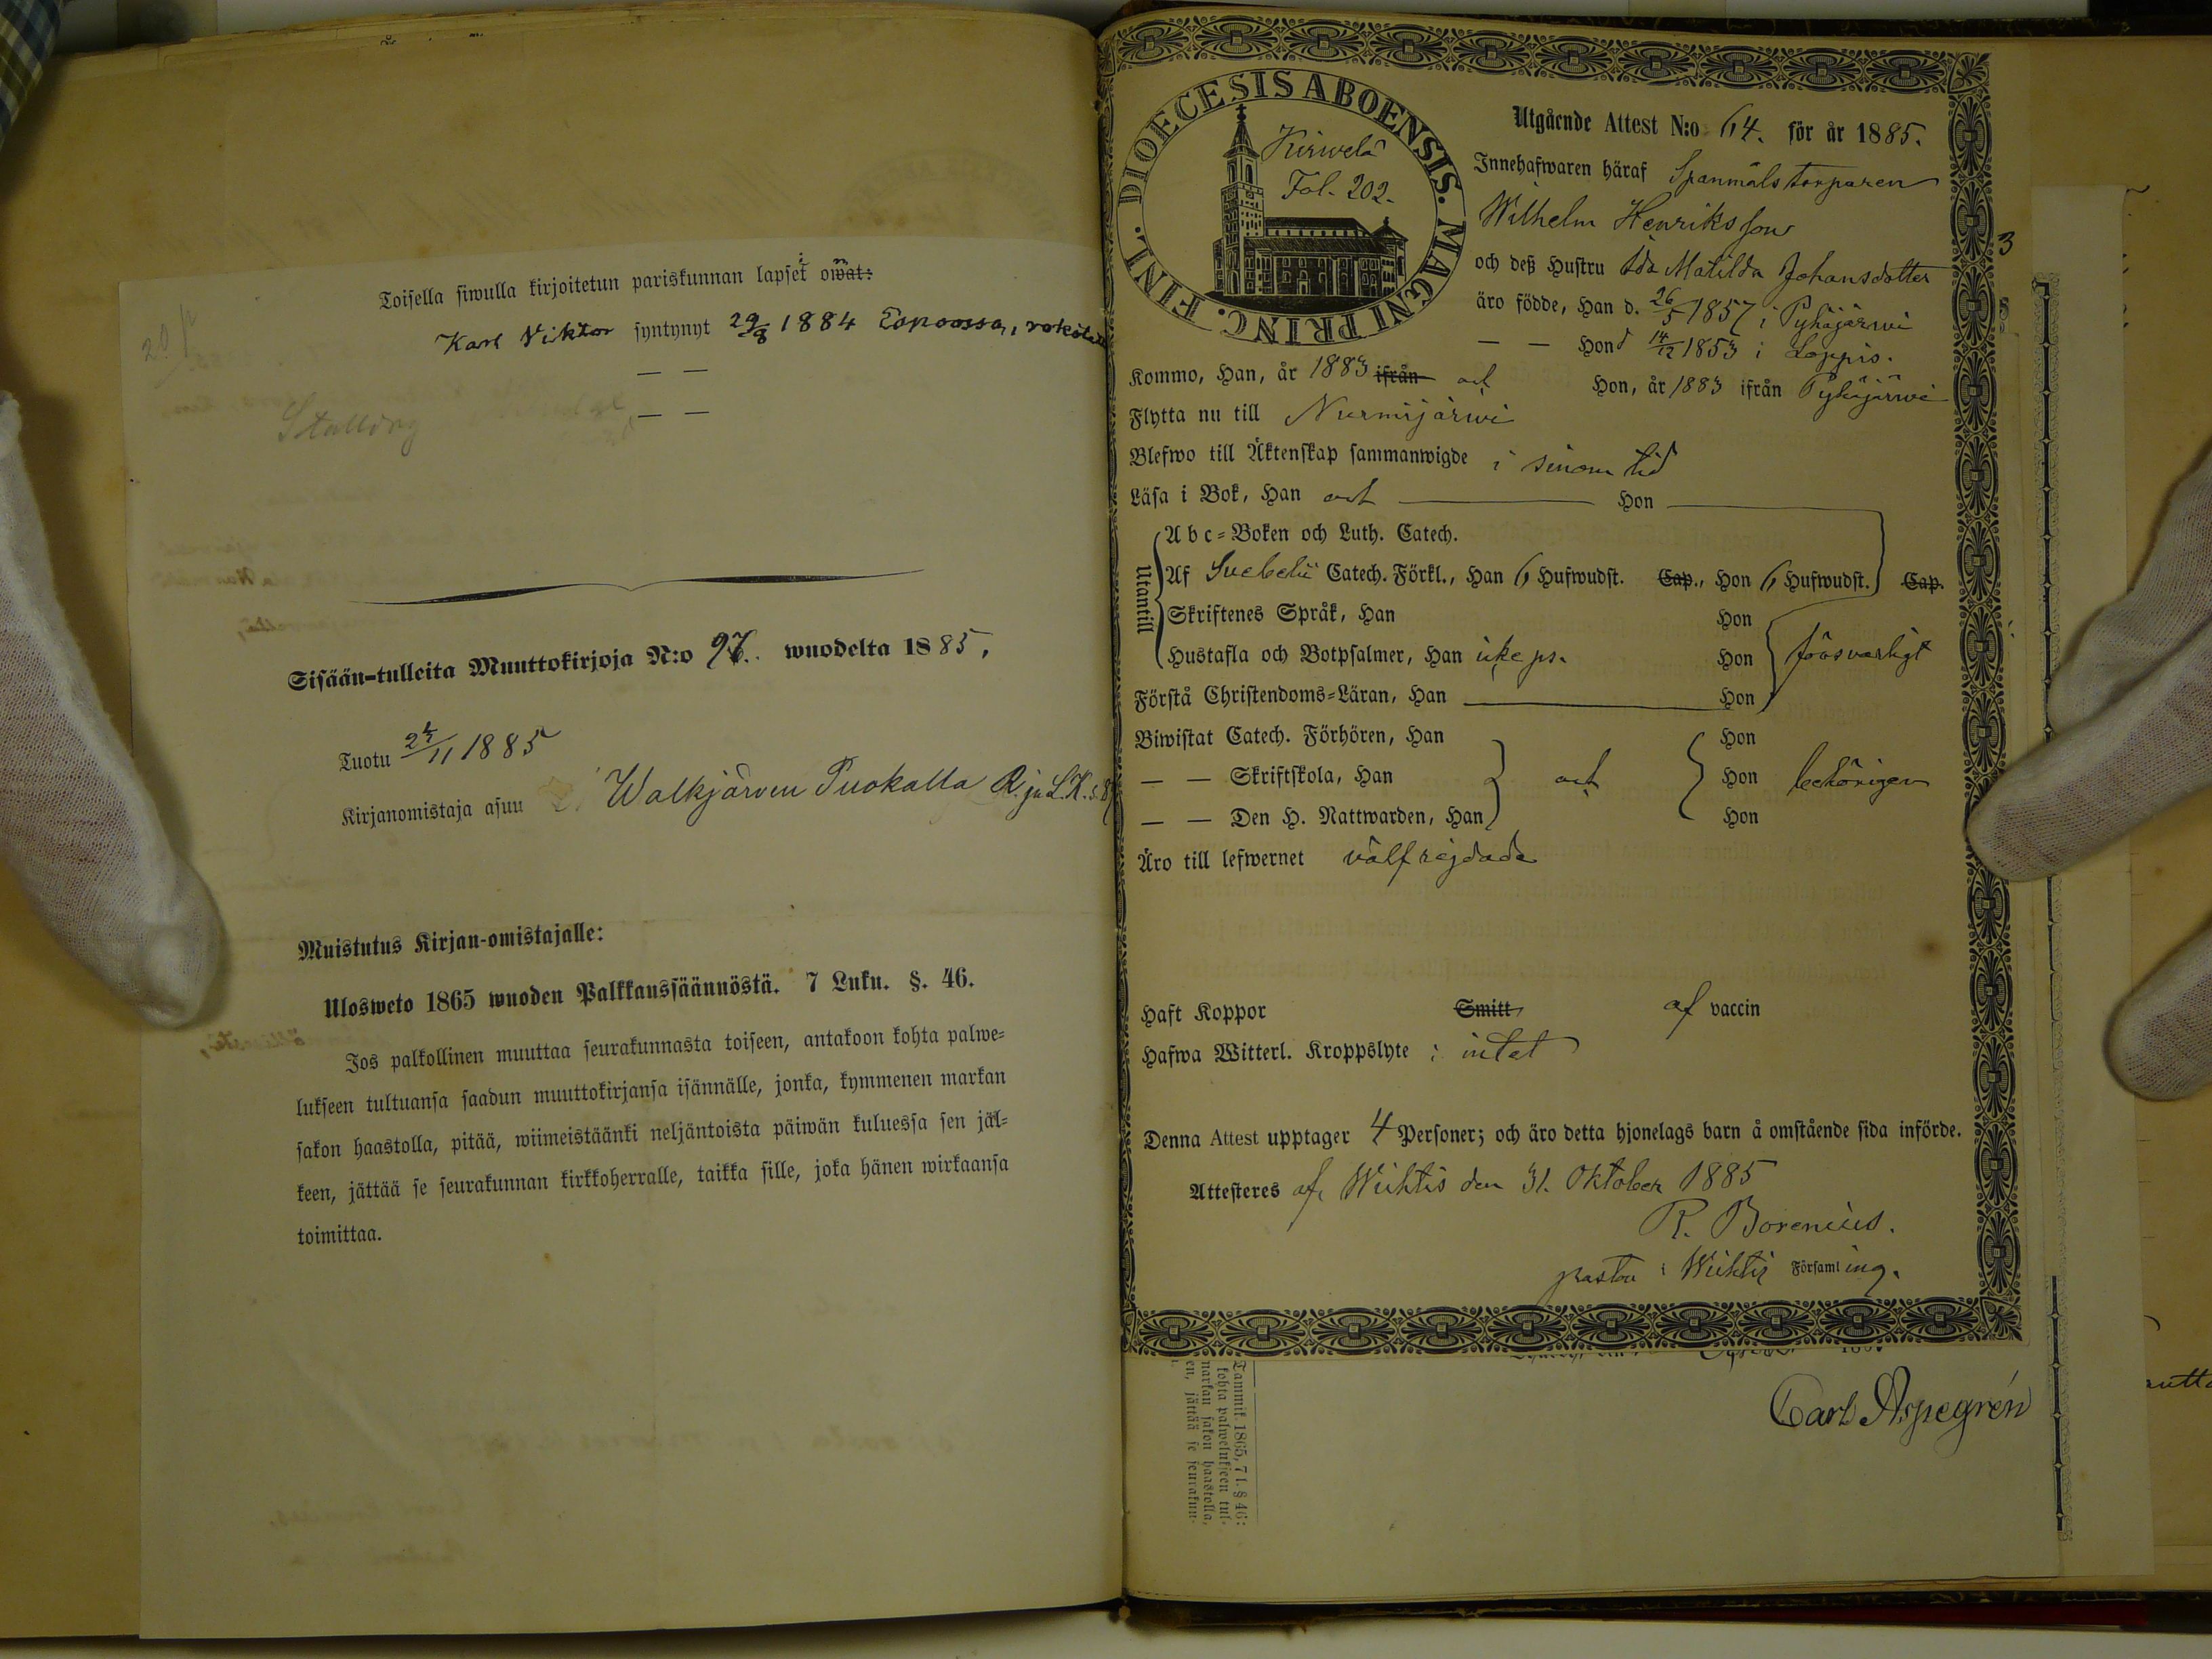 Toisella siwulla kirjoitetun pariskunnan lapset owat:
Karl Viktor syntynyt 29/8 1884 Espoossa,
— —
— —
Sisään-tulleita Muuttokirjoja N:o 97. wuodelta 1885,
Tuotu 24/11 1885
Kirjanomistaja asuu Walkjärven Puokalla R. ja L.K. s.
Muistutus Kirjan-omistajalle:
Ulosweto 1865 wuoden Palkkaussäännöstä. 7 Luku. §. 46.
Jos palkollinen muuttaa seurakunnasta toiseen, antakoon kohta palwe-
lukseen tultuansa saadun muuttokirjansa isännälle, jonka, kymmenen markan
sakon haastolla, pitää, wiimeistäänki neljäntoista päiwän kuluessa sen jäl-
keen, jättää se seurakunnan kirkkoherralle, taikka sille, joka hänen wirkaansa
toimittaa.
DIOECESIS ABOENSIS. MAGNI PRINC. FINL.
Kirwelä
Fol. 202.
Utgående Attest N:o 64. för år 1885.
Innehafwaren häraf Spanmålstorparen
Wilhelm Henriksson
och deß Hustru Ida Matilda Johansdotter
äro födde, Han d. 26/5 1857 i Pyhäjärwi
— — Hon d 14/12 1853 i Loppis.
Kommo, Han, år 1883 ifrån och Hon, år 1883 ifrån Pyhäjärwi
Flytta nu till Nurmijärwi
Blefwo till Äktenskap sammanwigde i sinom tid
Läsa i Bok, Han och Hon
Utantill
Abc-Boken och Luth. Catech.
Af Svebelii Catech. Förkl., Han 6 Hufwudst. Cap., Hon 6 Hufwudst. Cap.
Skriftenes Språk, Han Hon
Hustafla och Botpsalmer, Han icke ps. Hon försvarligt
Förstå Christendoms-Läran, Han Hon
Biwistat Catech. Förhören, Han Hon
— — Skriftskola, Han och Hon behörigen
— — Den H. Nattwarden, Han Hon
Äro till lefwernet välfrejdade
Haft Koppor Smitt af vaccin
Hafwa Witterl. Kroppslyte : intet
Denna Attest upptager 4 Personer; och äro detta hjonelags barn å omstående sida införde.
Attesteres af Wichtis den 31. Oktober 1885
R. Borenius.
pastor i Wichtis Församling.
Carl Aspegrén
Tammik. 1865, 7 l. § 46:
kohta palwelukseen tul-
markan sakon haastolla,
en, jättää se seurakun-
3